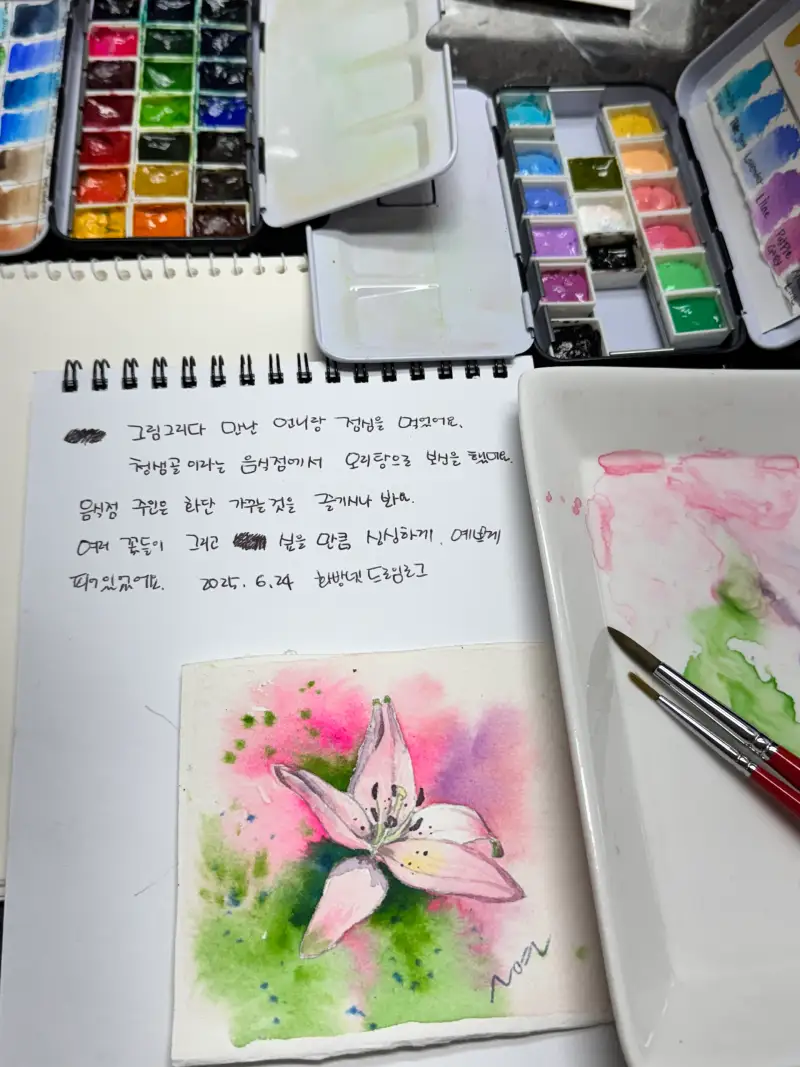 그림그리다 만난 언니랑 점심을 먹었어요.
청생골이라는 음식점에서 오리탕으로 보신을 했네요.
음식점 주인은 화단 가꾸는것을 즐기시나 봐요.
여러 꽃들이 그리고 싶을 만큼 싱싱하게. 예쁘게
피어있었어요. 2025. 6.24 화방넷드로잉로그